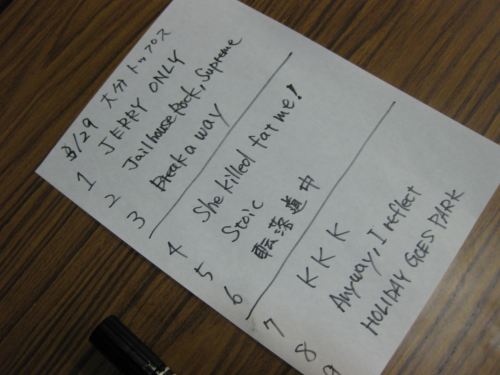 3/29 大分トップス
1 JERRY ONLY
2 Jailhouse Rock, Supreme
3 Break a way
4 She killed fat me!
5 Stoic
6 転落道中
7 KKK
8 Anyway, I reflect
9 HOLIDAY GOES PARK